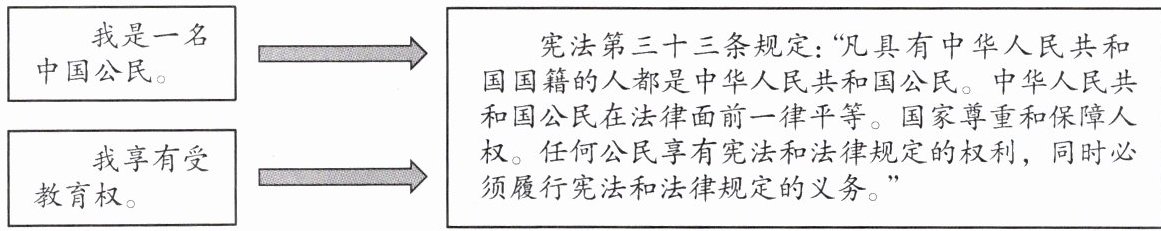 我是一名
中国公民。
我享有受
教育权。
宪法第三十三条规定：“凡具有中华人民共和
国国籍的人都是中华人民共和国公民。中华人民共
和国公民在法律面前一律平等。国家尊重和保障人
权。任何公民享有宪法和法律规定的权利，同时必
须履行宪法和法律规定的义务。”